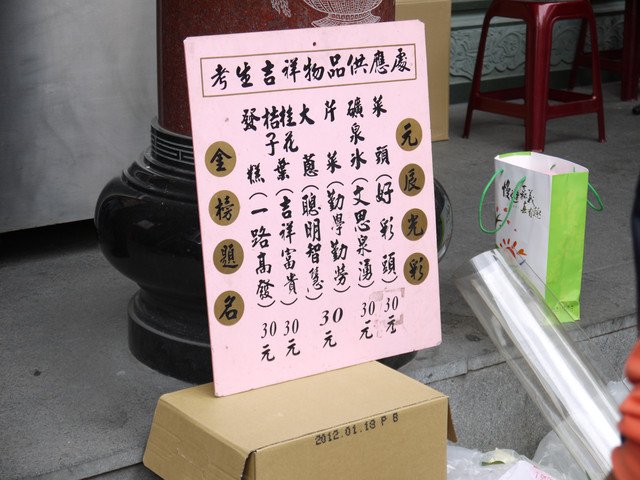 考生吉祥物品供應處
元辰光彩
菜頭(好彩頭)30元
礦泉水(文思泉湧)30元
芹菜(勤學勤勞)30元
大蔥(聰明智慧)
桂花葉
桔子(吉祥富貴)30元
發糕(一路高發)30元
金榜題名
2012.01.18 P 8